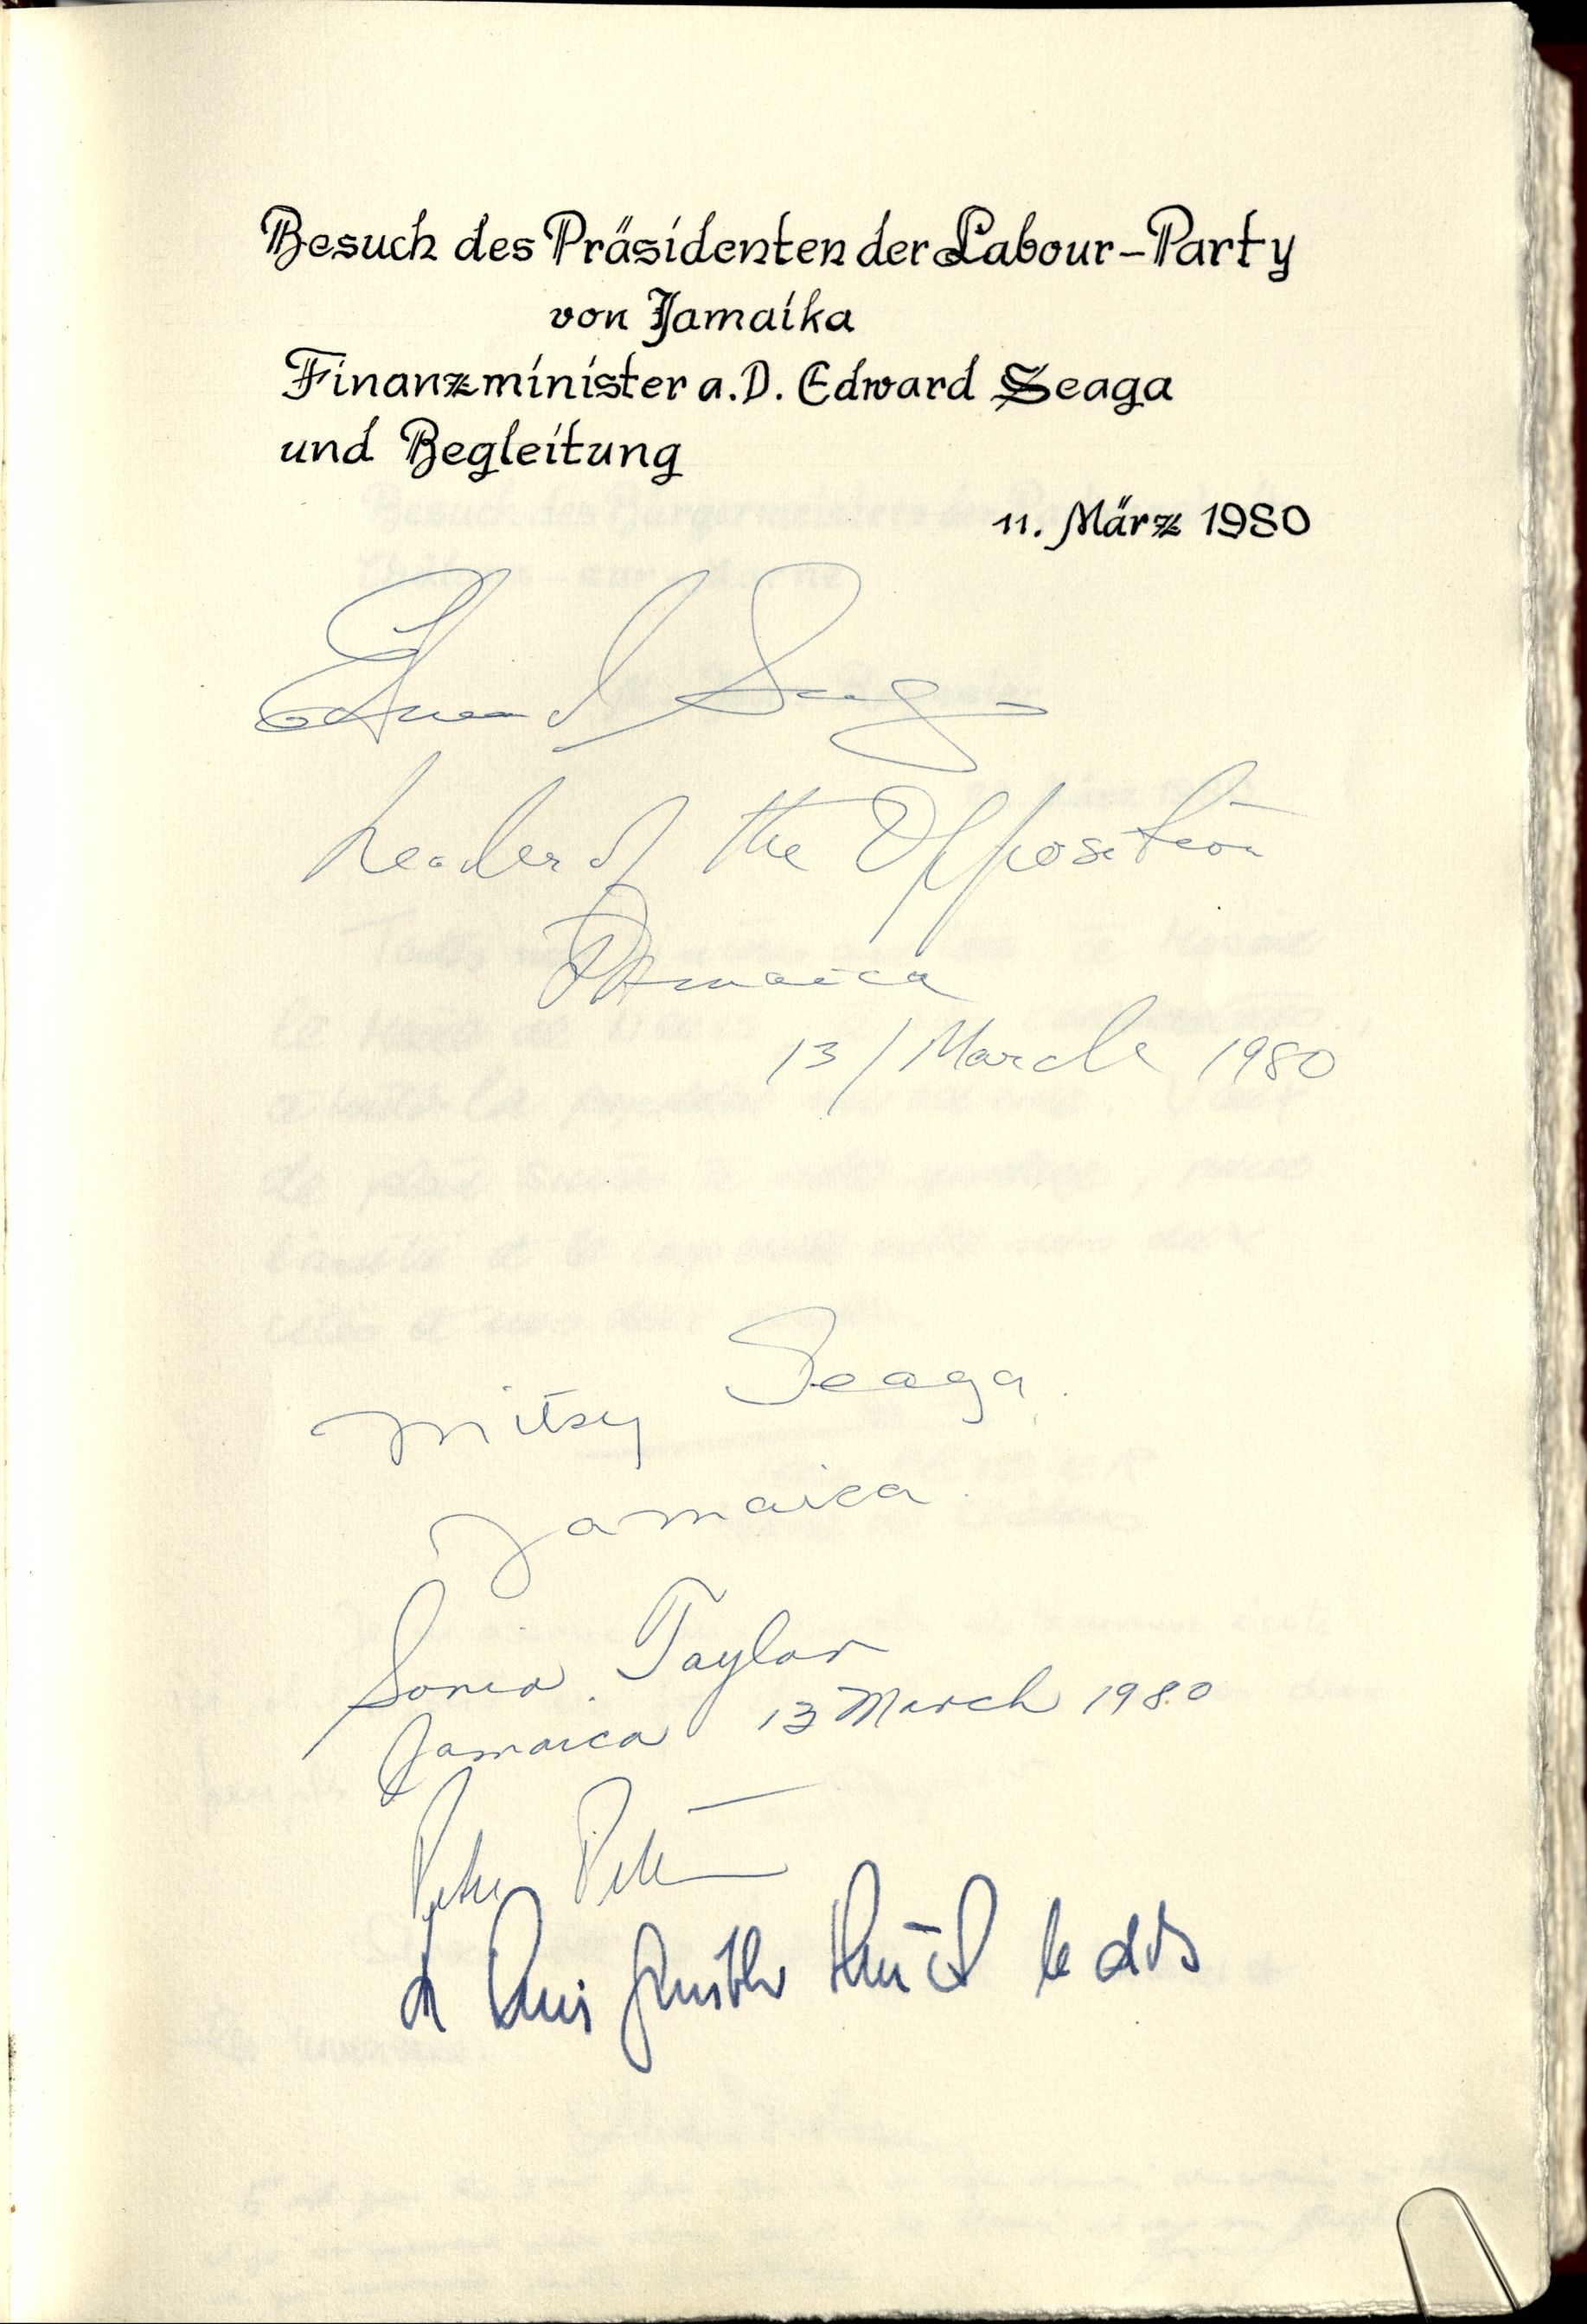 Besuch des Präsidenten der Labour-Party
von Jamaika
Finanzminister a.D. Edward Seaga
und Begleitung
11. März 1980
Edward Seaga
Leader of the Opposition
Jamaica
13/March 1980
Mitsy Seaga.
Jamaica.
Sonia Taylor
Jamaica 13 March 1980
Peter